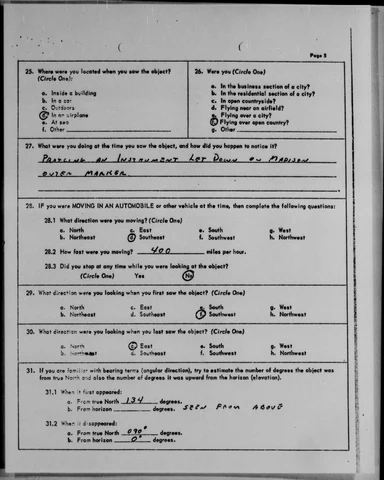 Page 5
25. Where were you located when you saw the object?
(Circle One):
a. Inside a building
b. In a car
c. Outdoors
d. In an airplane
e. At sea
f. Other
26. Were you (Circle One)
a. In the business section of a city?
b. In the residential section of a city?
c. In open countryside?
d. Flying near an airfield?
e. Flying over a city?
f. Flying over open country?
g. Other
27. What were you doing at the time you saw the object, and how did you happen to notice it?
PRACTICING AN INSTRUMENT LET DOWN ON MADISON
OUTER MARKER.
28. IF you were MOVING IN AN AUTOMOBILE or other vehicle at the time, then complete the following questions:
28.1 What direction were you moving? (Circle One)
a. North c. East e. South g. West
b. Northeast d. Southeast f. Southwest h. Northwest
28.2 How fast were you moving? 400 miles per hour.
28.3 Did you stop at any time while you were looking at the object?
(Circle One) Yes No
29. What direction were you looking when you first saw the object? (Circle One)
a. North c. East e. South g. West
b. Northeast d. Southeast f. Southwest h. Northwest
30. What direction were you looking when you last saw the object? (Circle One)
a. North c. East e. South g. West
b. Northeast d. Southeast f. Southwest h. Northwest
31. If you are familiar with bearing terms (angular direction), try to estimate the number of degrees the object was
from true North and also the number of degrees it was upward from the horizon (elevation).
31.1 When it first appeared:
a. From true North 134 degrees.
b. From horizon degrees. SEEN FROM ABOVE
31.2 When it disappeared:
a. From true North 090° degrees.
b. From horizon 0° degrees.